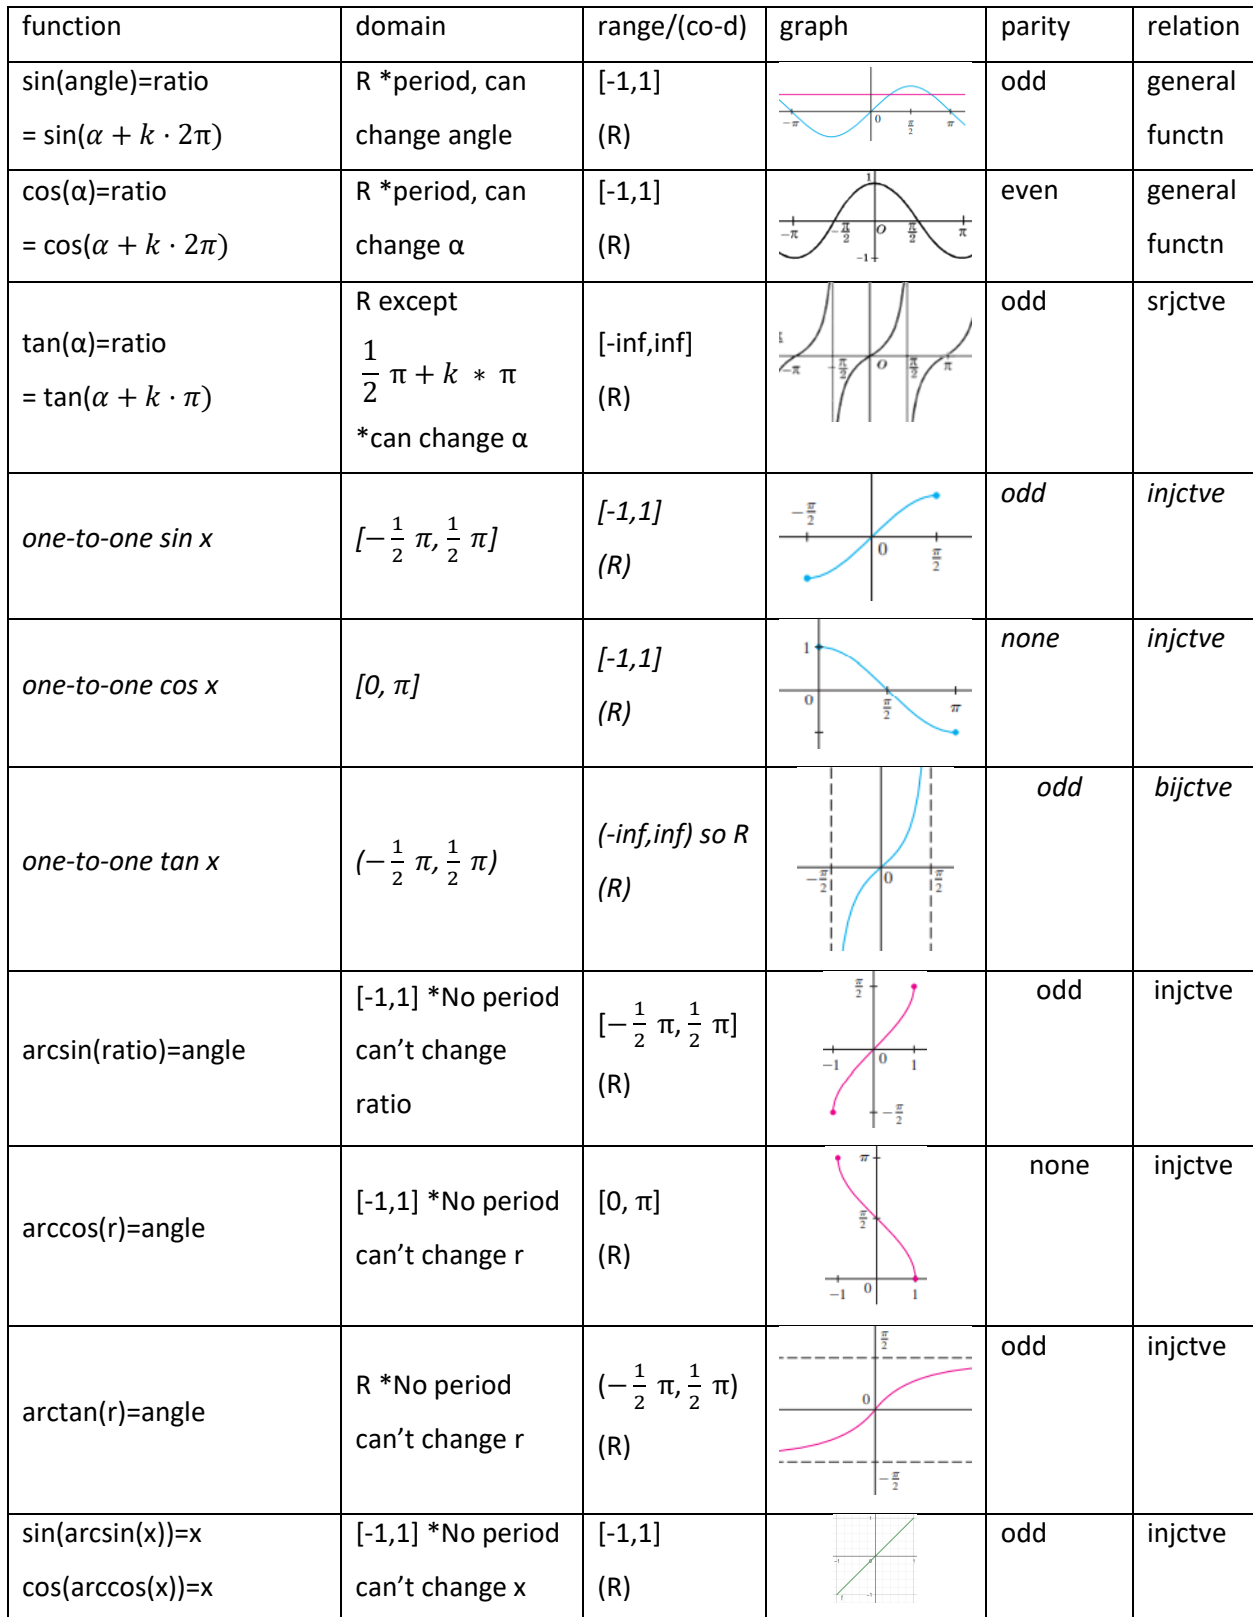 function domain range/(co-d) graph parity relation
sin(angle)=ratio
= sin(α + k · 2π)
R *period, can
change angle
[-1,1]
(R)
-π 0 π/2 π
odd
general
functn
cos(α)=ratio
= cos(α + k · 2π)
R *period, can
change α
[-1,1]
(R)
1
-π -π/2 O π/2 π
-1
even
general
functn
tan(α)=ratio
= tan(α + k · π)
R except
1/2 π + k * π
*can change α
[-inf,inf]
(R)
-π -π/2 O π/2 π
odd
srjctve
one-to-one sin x
[-1/2 π, 1/2 π]
[-1,1]
(R)
-π/2
0 π/2
odd
injctve
one-to-one cos x
[0, π]
[-1,1]
(R)
1
0 π/2 π
none
injctve
one-to-one tan x
(-1/2 π, 1/2 π)
(-inf,inf) so R
(R)
-π/2 0 π/2
odd
bijctve
arcsin(ratio)=angle
[-1,1] *No period
can't change
ratio
[-1/2 π, 1/2 π]
(R)
π/2
-1 0 1
-π/2
odd
injctve
arccos(r)=angle
[-1,1] *No period
can't change r
[0, π]
(R)
π
π/2
-1 0 1
none
injctve
arctan(r)=angle
R *No period
can't change r
(-1/2 π, 1/2 π)
(R)
π/2
0
-π/2
odd
injctve
sin(arcsin(x))=x
cos(arccos(x))=x
[-1,1] *No period
can't change x
[-1,1]
(R)
1
-1 0 1
-1
odd
injctve